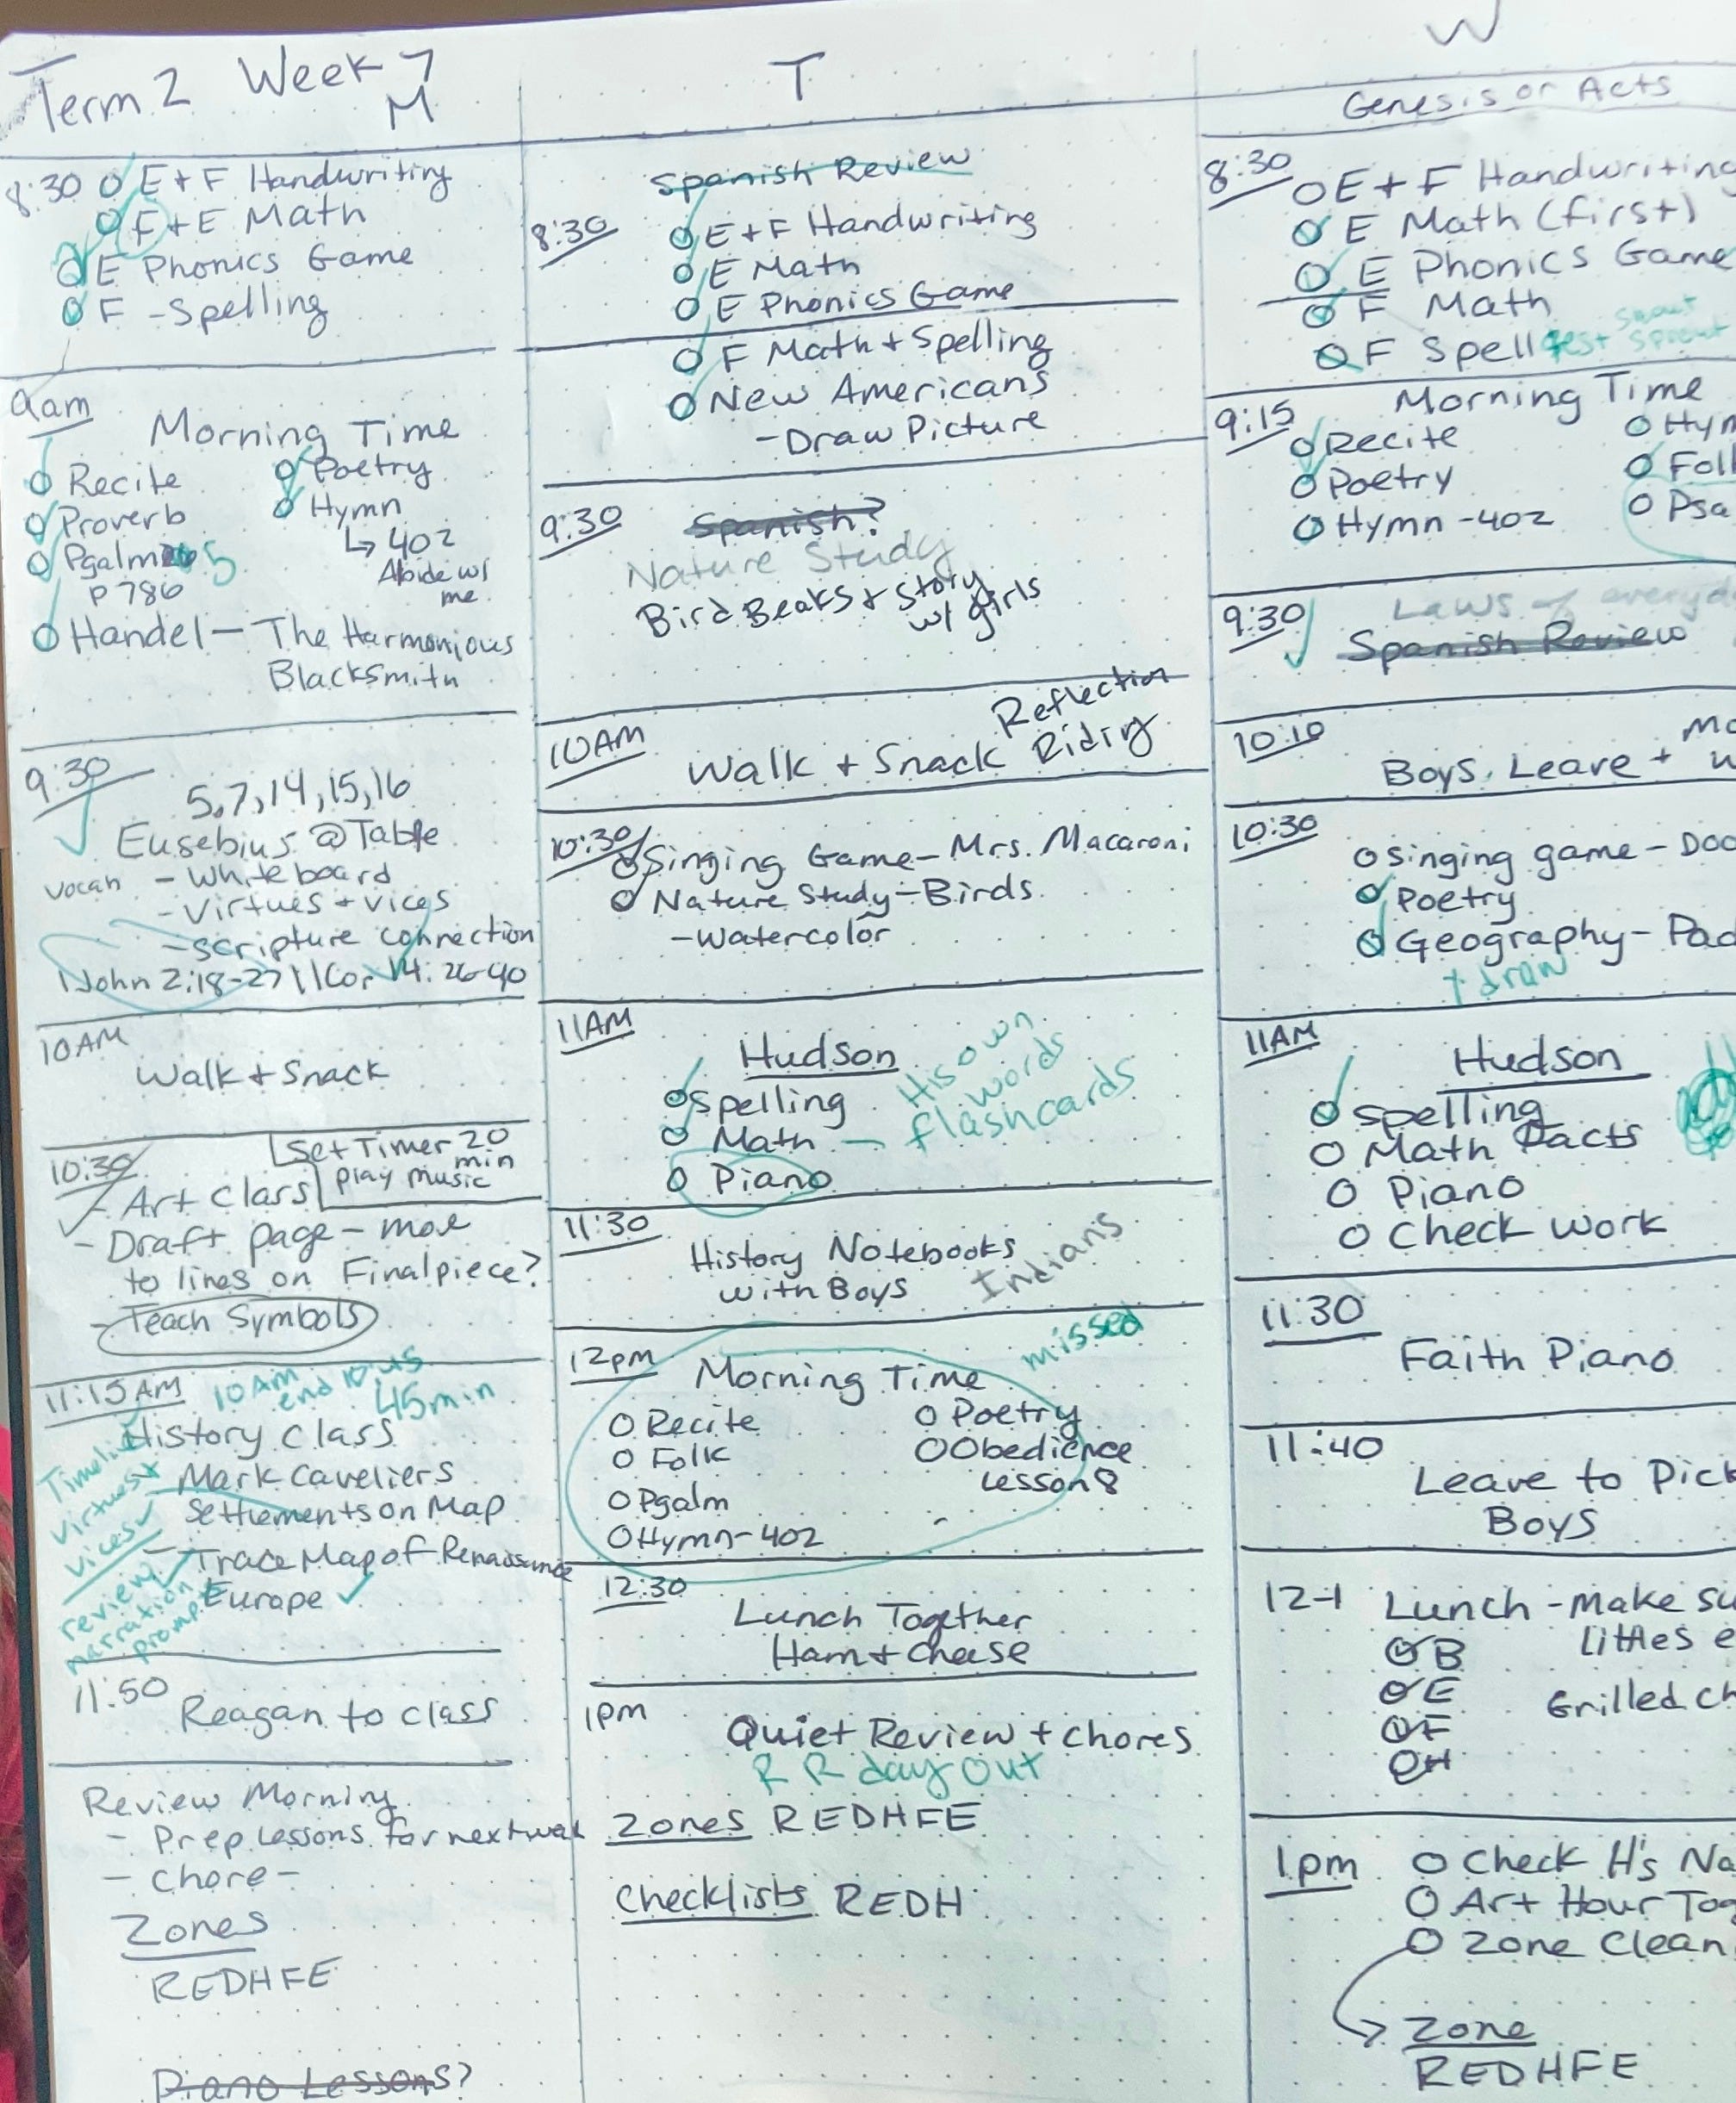 Term 2 Week 7
M
8:30 O E + F Handwriting
O F + E Math
O E Phonics Game
O F - Spelling
9am
Morning Time
O Recite
O Proverb
O Psalm 5
p 786
O Poetry
O Hymn
↳ 402
Abide w/
me
O Handel - The Harmonious
Blacksmith
9:30
5, 7, 14, 15, 16
Eusebius @ Table
vocab - Whiteboard
- Virtues + vices
- Scripture connection
1 John 2:18-27 \ 1 Cor 14:26-40
10AM
Walk + Snack
10:30
Set Timer 20
min
Play music
- Art Class
- Draft page - move
to lines on Final piece?
- Teach Symbols
11:15 AM
10AM
end 10:45
45min
History class
Timeline
Virtues +
Vices
review
narration
prompt
- Mark Caveliers
Settlements on Map
- Trace Map of Renaissance
Europe
11:50
Reagan to class
Review Morning
- Prep Lessons for next week
- Chore -
Zones
REDHFE
Piano Lessons?
T
Spanish Review
8:30
O E + F Handwriting
O E Math
O E Phonics Game
O F Math + Spelling
O New Americans
- Draw Picture
9:30
Spanish?
Nature Study
Bird Beaks + Story
w/ girls
10AM
Walk + Snack
Reflection
Riding
10:30
O Singing Game - Mrs. Macaroni
O Nature Study - Birds
- Watercolor
11AM
Hudson
O Spelling
O Math -
His own
words
flashcards
O Piano
11:30
History Notebooks
with Boys
Indians
12pm
Morning Time
missed
O Recite
O Folk
O Psalm
O Hymn - 402
O Poetry
O Obedience
Lesson 8
12:30
Lunch Together
Ham + Cheese
1pm
Quiet Review + Chores
R R day out
Zones REDHFE
Checklists REDH
W
Genesis or Acts
8:30
O E + F Handwriting
O E Math (first)
O E Phonics Game
O F Math
O F Spell test
sprout
9:15
Morning Time
O Recite
O Poetry
O Hymn - 402
O Hym
O Fol
O Psa
9:30
Laws of everyd
Spanish Review
10:10
Boys Leave +
10:30
O Singing game - Doo
O Poetry
O Geography - Pad
+ draw
11AM
Hudson
O Spelling
O Math Facts
O Piano
O Check Work
11:30
Faith Piano
11:40
Leave to Pick
Boys
12-1 Lunch - Make su
littles e
O B
O E
O F
O H
Grilled ch
1pm
O Check H's Na
O Art Hour Tog
O Zone Clean
Zone
REDHFE